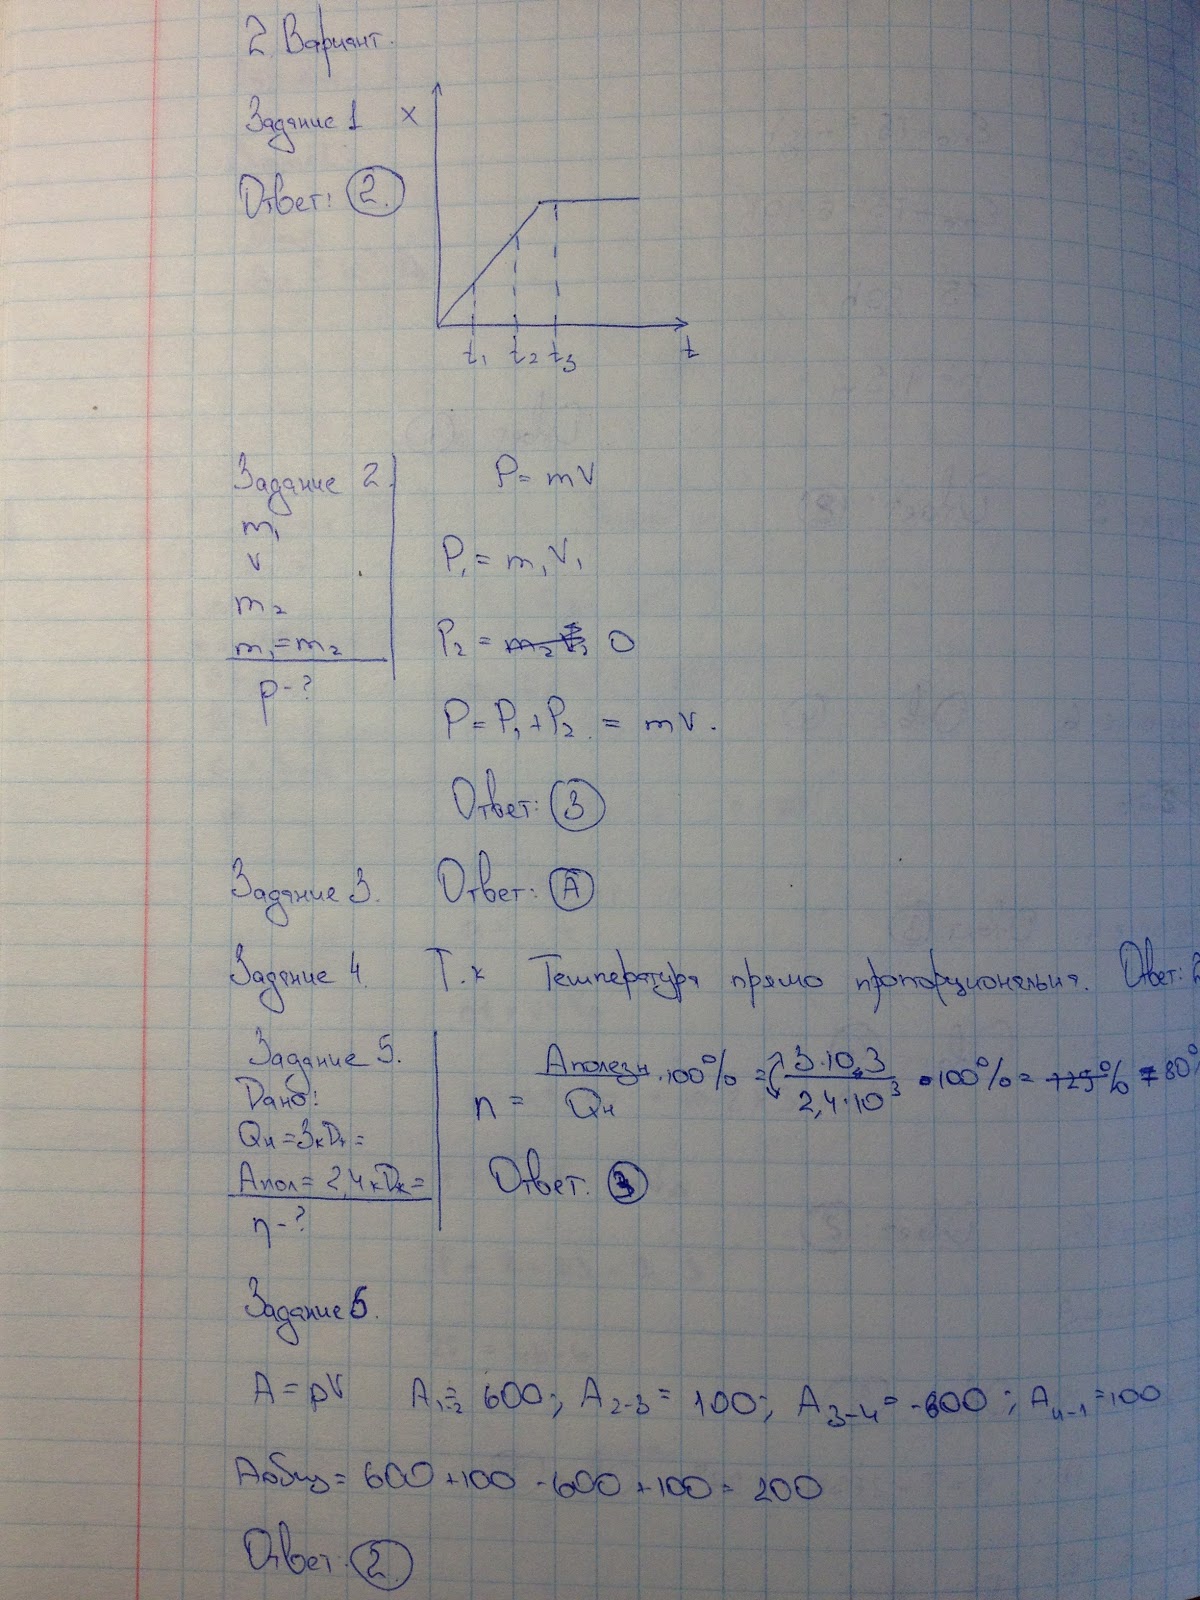 2 Вариант.
Задание 1
x
Ответ: 2.
t₁ t₂ t₃ t
Задание 2.
m₁
v
m₂
m₁=m₂
p-?
P= mV
P₁= m₁V₁
P₂= 0
P= P₁+P₂ = mV.
Ответ: 3
Задание 3. Ответ: А
Задание 4. Т.к Температура прямо пропорциональна. Ответ: 2
Задание 5.
Дано:
Qн=3кДж=
Апол= 2,4кДж=
η-?
η = Аполезн/Qн ·100% = 3·10³/2,4·10³ ·100% = 125% = 80%
Ответ. 3
Задание 6.
A= pV A₁₋₂= 600; A₂₋₃= 100; A₃₋₄= -600; A₄₋₁=100
Aобщ= 600+100 -600+100= 200
Ответ: 2